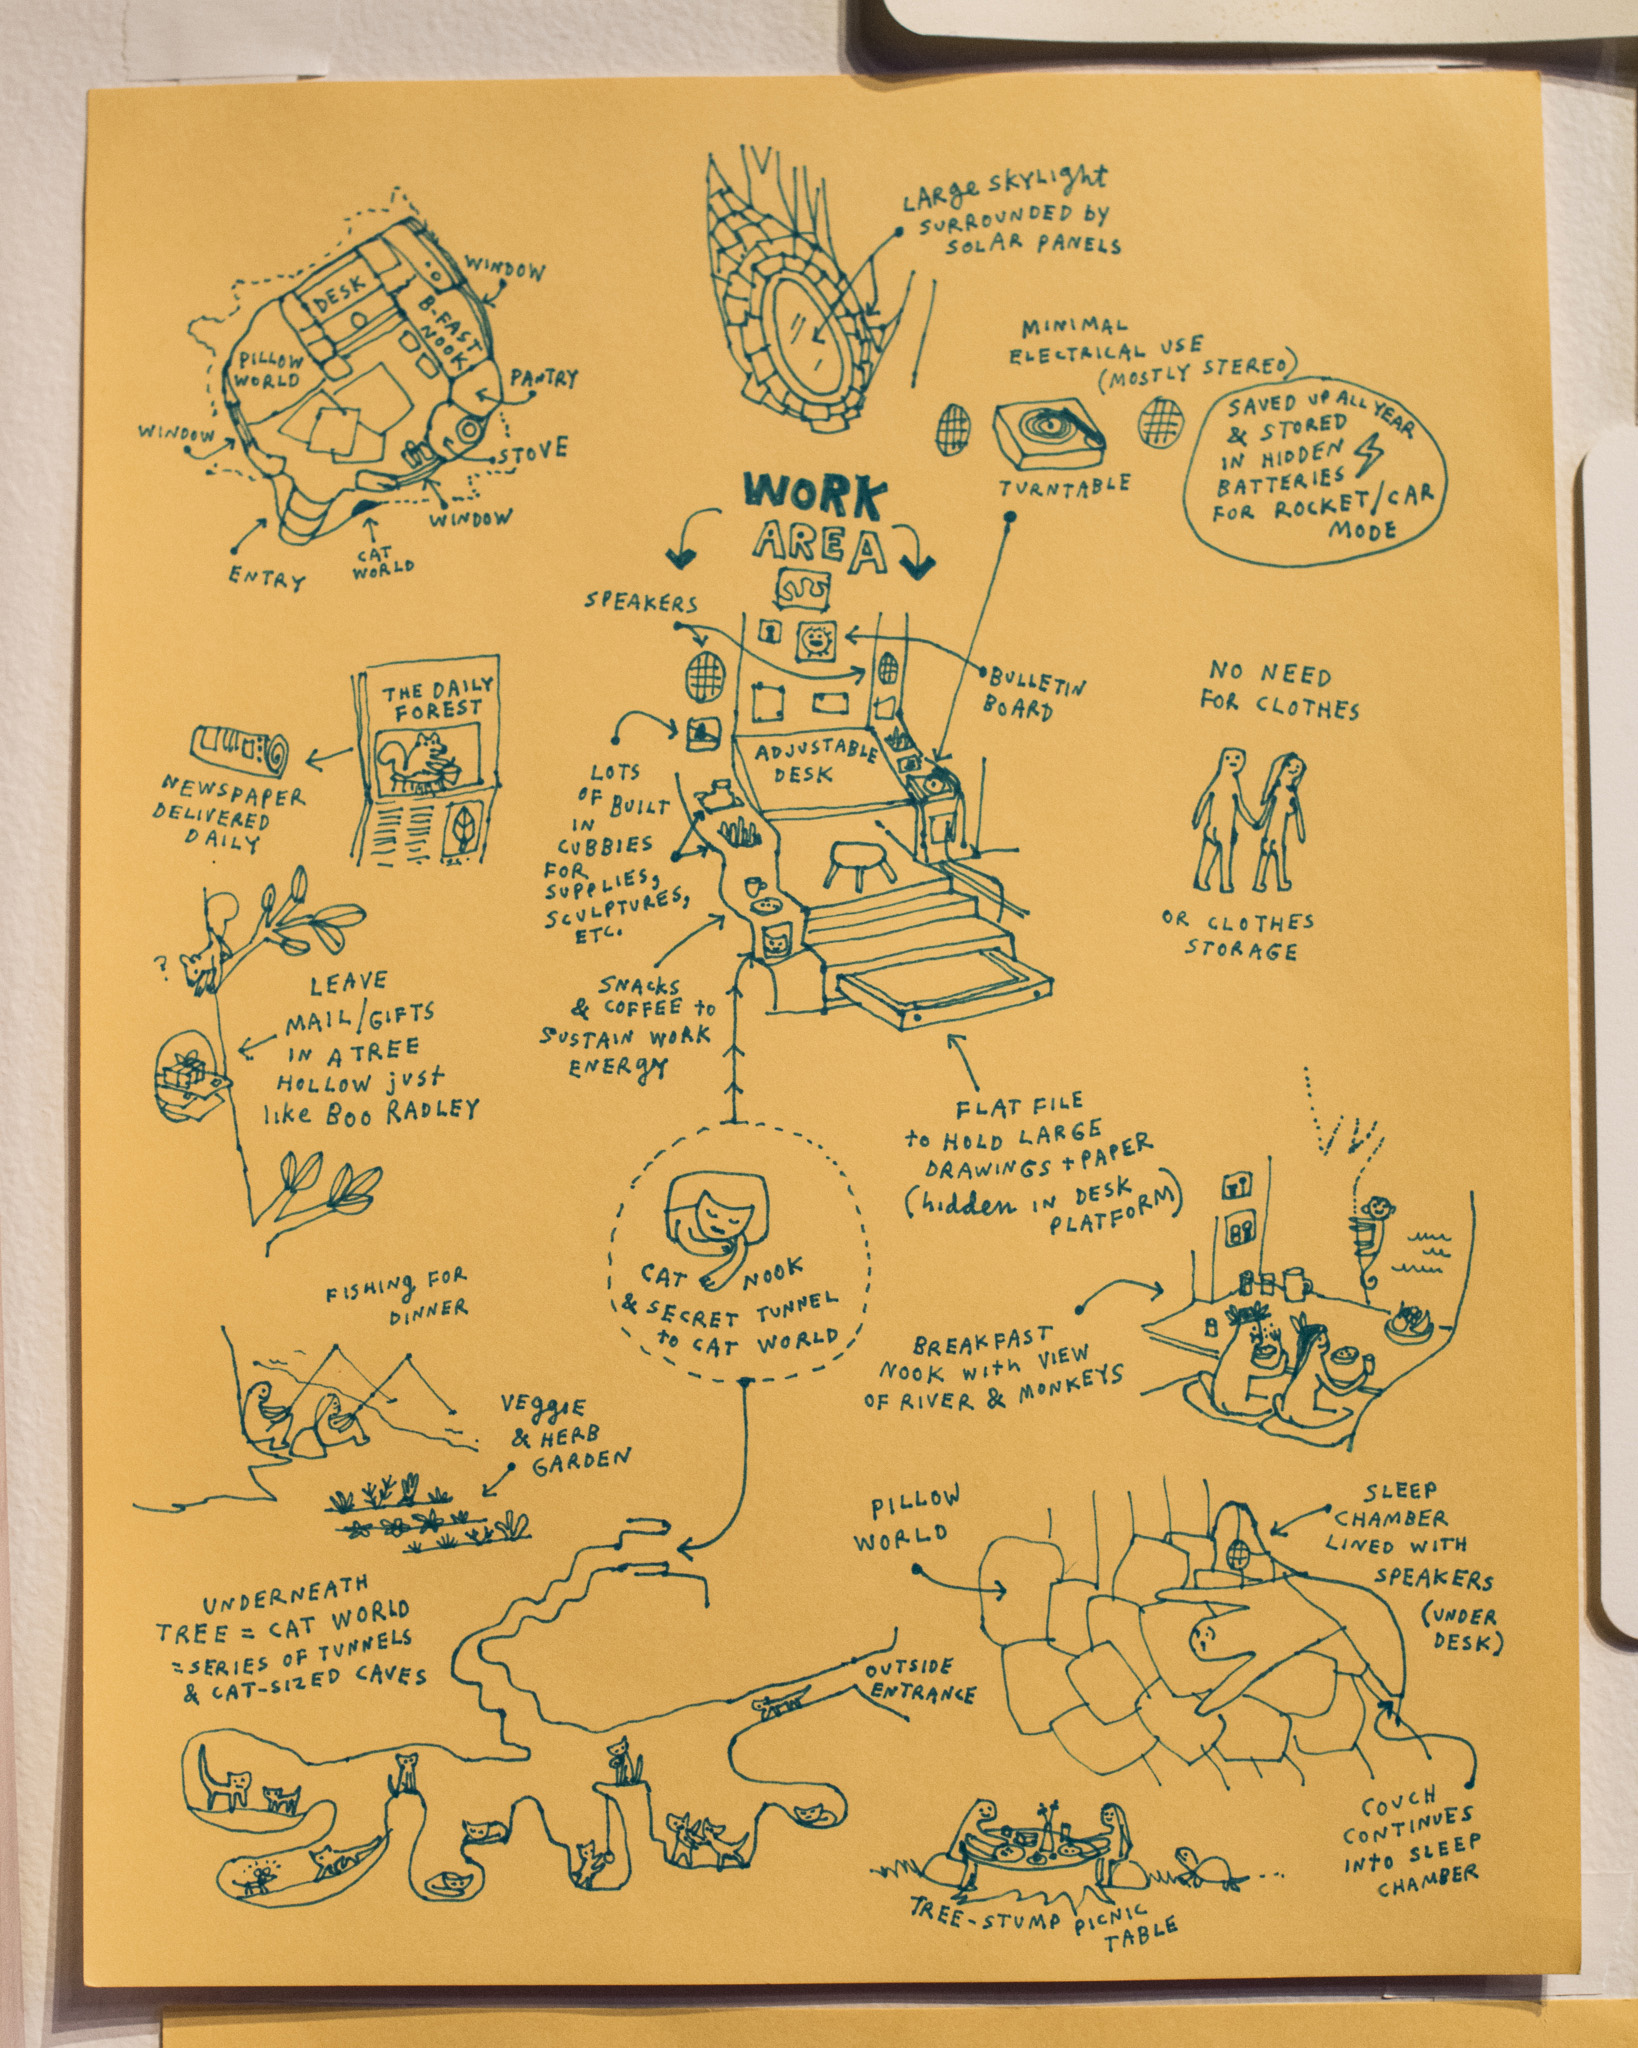 LARGE SKYLIGHT
SURROUNDED BY
SOLAR PANELS
WINDOW
DESK
B-FAST
NOOK
PILLOW
WORLD
PANTRY
WINDOW
STOVE
WINDOW
ENTRY
CAT
WORLD
MINIMAL
ELECTRICAL USE
(MOSTLY STEREO)
SAVED UP ALL YEAR
& STORED
IN HIDDEN
BATTERIES
FOR ROCKET/CAR
MODE
TURNTABLE
WORK
AREA
SPEAKERS
BULLETIN
BOARD
ADJUSTABLE
DESK
LOTS
OF BUILT
IN
CUBBIES
FOR
SUPPLIES,
SCULPTURES,
ETC.
SNACKS
& COFFEE to
SUSTAIN WORK
ENERGY
FLAT FILE
to HOLD LARGE
DRAWINGS + PAPER
(hidden IN DESK
PLATFORM)
NO NEED
FOR CLOTHES
OR CLOTHES
STORAGE
THE DAILY
FOREST
NEWSPAPER
DELIVERED
DAILY
?
LEAVE
MAIL/GIFTS
IN A TREE
HOLLOW just
like BOO RADLEY
CAT NOOK
& SECRET TUNNEL
to CAT WORLD
BREAKFAST
NOOK with VIEW
OF RIVER & MONKEYS
FISHING FOR
DINNER
VEGGIE
& HERB
GARDEN
PILLOW
WORLD
SLEEP
CHAMBER
LINED WITH
SPEAKERS
(UNDER
DESK)
UNDERNEATH
TREE = CAT WORLD
= SERIES OF TUNNELS
& CAT-SIZED CAVES
OUTSIDE
ENTRANCE
COUCH
CONTINUES
INTO SLEEP
CHAMBER
TREE-STUMP PICNIC
TABLE